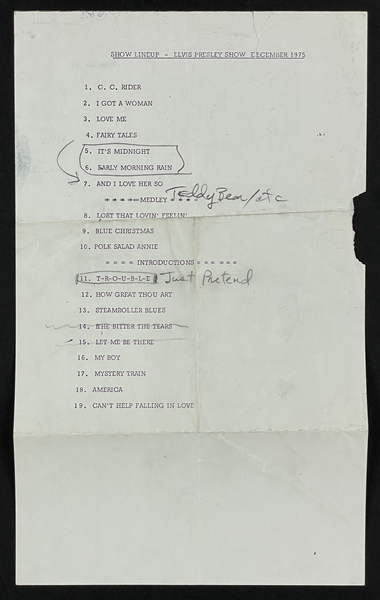 SHOW LINEUP - ELVIS PRESLEY SHOW DECEMBER 1975
1. C. C. RIDER
2. I GOT A WOMAN
3. LOVE ME
4. FAIRY TALES
5. IT'S MIDNIGHT
6. EARLY MORNING RAIN
7. AND I LOVE HER SO
= = = = MEDLEY = = = = Teddy Bear/etc
8. LOST THAT LOVIN' FEELIN'
9. BLUE CHRISTMAS
10. POLK SALAD ANNIE
= = = = INTRODUCTIONS = = = = = =
11. T-R-O-U-B-L-E Just Pretend
12. HOW GREAT THOU ART
13. STEAMROLLER BLUES
14. THE BITTER THE TEARS
15. LET ME BE THERE
16. MY BOY
17. MYSTERY TRAIN
18. AMERICA
19. CAN'T HELP FALLING IN LOVE